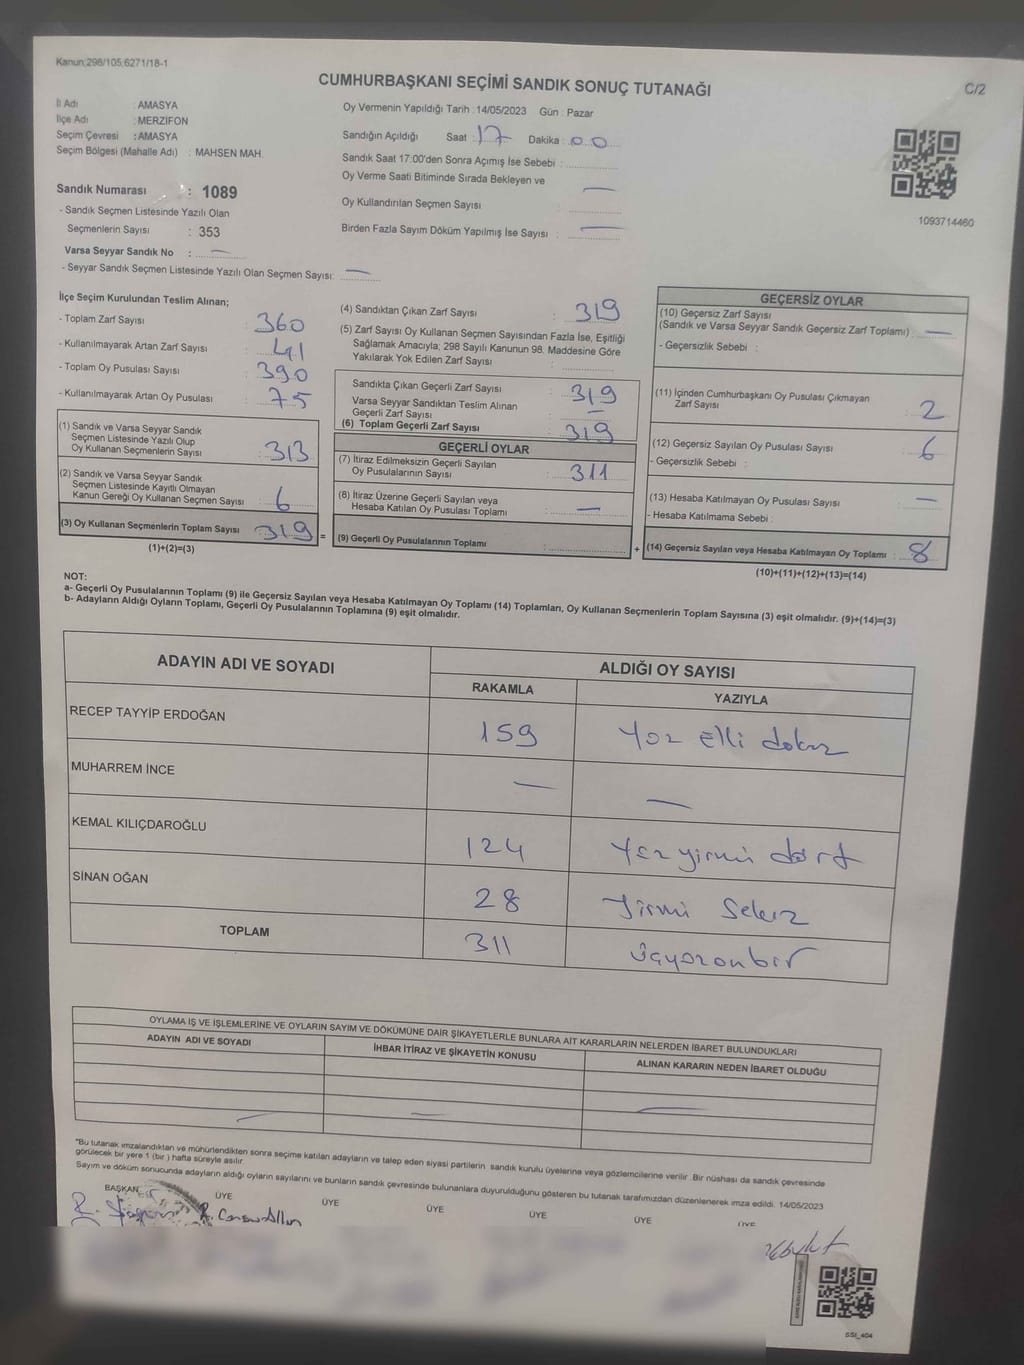 Kanun:298/105;6271/18-1
CUMHURBAŞKANI SEÇİMİ SANDIK SONUÇ TUTANAĞI
C/2
İl Adı : AMASYA
İlçe Adı : MERZİFON
Seçim Çevresi : AMASYA
Seçim Bölgesi (Mahalle Adı) : MAHSEN MAH.
Oy Vermenin Yapıldığı Tarih : 14/05/2023 Gün : Pazar
Sandığın Açıldığı Saat : 17 Dakika : 00
Sandık Saat 17:00'den Sonra Açımış İse Sebebi :
Oy Verme Saati Bitiminde Sırada Bekleyen ve
Oy Kullandırılan Seçmen Sayısı : —
Birden Fazla Sayım Döküm Yapılmış İse Sayısı : —
1093714460
Sandık Numarası : 1089
- Sandık Seçmen Listesinde Yazılı Olan
Seçmenlerin Sayısı : 353
Varsa Seyyar Sandık No : —
- Seyyar Sandık Seçmen Listesinde Yazılı Olan Seçmen Sayısı: —
İlçe Seçim Kurulundan Teslim Alınan;
- Toplam Zarf Sayısı : 360
- Kullanılmayarak Artan Zarf Sayısı : 41
- Toplam Oy Pusulası Sayısı : 390
- Kullanılmayarak Artan Oy Pusulası : 75
(1) Sandık ve Varsa Seyyar Sandık
Seçmen Listesinde Yazılı Olup
Oy Kullanan Seçmenlerin Sayısı : 313
(2) Sandık ve Varsa Seyyar Sandık
Seçmen Listesinde Kayıtlı Olmayan
Kanun Gereği Oy Kullanan Seçmen Sayısı : 6
(3) Oy Kullanan Seçmenlerin Toplam Sayısı 319 =
(1)+(2)=(3)
(4) Sandıktan Çıkan Zarf Sayısı : 319
(5) Zarf Sayısı Oy Kullanan Seçmen Sayısından Fazla İse, Eşitliği
Sağlamak Amacıyla; 298 Sayılı Kanunun 98. Maddesine Göre
Yakılarak Yok Edilen Zarf Sayısı :
Sandıkta Çıkan Geçerli Zarf Sayısı : 319
Varsa Seyyar Sandıktan Teslim Alınan
Geçerli Zarf Sayısı : —
(6) Toplam Geçerli Zarf Sayısı : 319
GEÇERLİ OYLAR
(7) İtiraz Edilmeksizin Geçerli Sayılan
Oy Pusulalarının Sayısı : 311
(8) İtiraz Üzerine Geçerli Sayılan veya
Hesaba Katılan Oy Pusulası Toplamı : —
(9) Geçerli Oy Pusulalarının Toplamı : +
GEÇERSİZ OYLAR
(10) Geçersiz Zarf Sayısı
(Sandık ve Varsa Seyyar Sandık Geçersiz Zarf Toplamı) : —
- Geçersizlik Sebebi :
(11) İçinden Cumhurbaşkanı Oy Pusulası Çıkmayan
Zarf Sayısı : 2
(12) Geçersiz Sayılan Oy Pusulası Sayısı : 6
- Geçersizlik Sebebi :
(13) Hesaba Katılmayan Oy Pusulası Sayısı : —
- Hesaba Katılmama Sebebi :
(14) Geçersiz Sayılan veya Hesaba Katılmayan Oy Toplamı : 8
(10)+(11)+(12)+(13)=(14)
NOT:
a- Geçerli Oy Pusulalarının Toplamı (9) ile Geçersiz Sayılan veya Hesaba Katılmayan Oy Toplamı (14) Toplamları, Oy Kullanan Seçmenlerin Toplam Sayısına (3) eşit olmalıdır. (9)+(14)=(3)
b- Adayların Aldığı Oyların Toplamı, Geçerli Oy Pusulalarının Toplamına (9) eşit olmalıdır.
ADAYIN ADI VE SOYADI
ALDIĞI OY SAYISI
RAKAMLA YAZIYLA
RECEP TAYYİP ERDOĞAN 159 Yüz Elli dokuz
MUHARREM İNCE — —
KEMAL KILIÇDAROĞLU 124 Yüz yirmi dört
SİNAN OĞAN 28 Yirmi Sekiz
TOPLAM 311 üçyüzonbir
OYLAMA İŞ VE İŞLEMLERİNE VE OYLARIN SAYIM VE DÖKÜMÜNE DAİR ŞİKAYETLERLE BUNLARA AİT KARARLARIN NELERDEN İBARET BULUNDUKLARI
ADAYIN ADI VE SOYADI İHBAR İTİRAZ VE ŞİKAYETİN KONUSU ALINAN KARARIN NEDEN İBARET OLDUĞU
— — —
"Bu tutanak imzalandıktan ve mühürlendikten sonra seçime katılan adayların ve talep eden siyasi partilerin sandık kurulu üyelerine veya gözlemcilerine verilir. Bir nüshası da sandık çevresinde
görülecek bir yere 1 (bir ) hafta süreyle asılır.
Sayım ve döküm sonucunda adayların aldığı oyların sayılarını ve bunların sandık çevresinde bulunanlara duyurulduğunu gösteren bu tutanak tarafımızdan düzenlenerek imza edildi. 14/05/2023
BAŞKAN ÜYE ÜYE ÜYE ÜYE ÜYE ÜYE
SSI_404